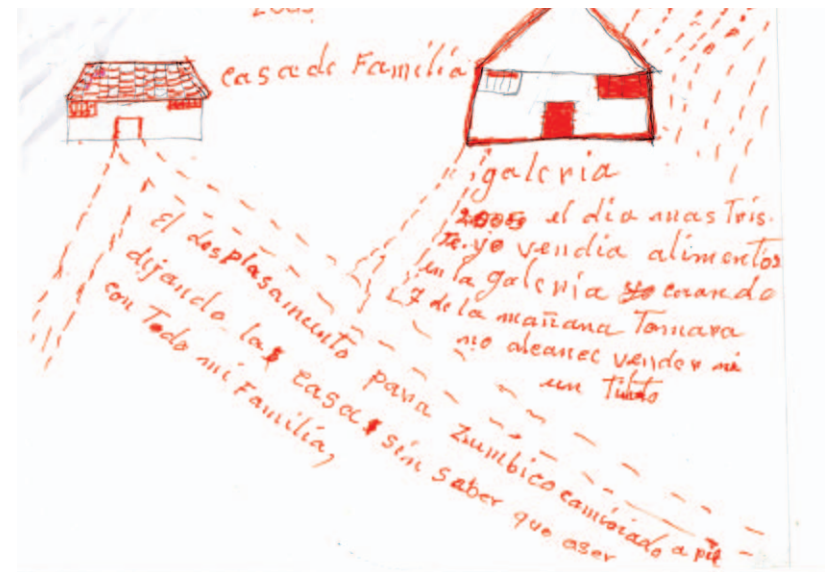 2005
casa de Familia
galeria
2005 el dia mas Tris-
Te. yo vendia alimentos
en la galeria cuando
7 de la mañana Tomara
no alcancé vender ni
un Tinto
El desplasamiento para Zumbico caminado a pie
dijando la casa sin saber que aser
con Todo mi Familia,